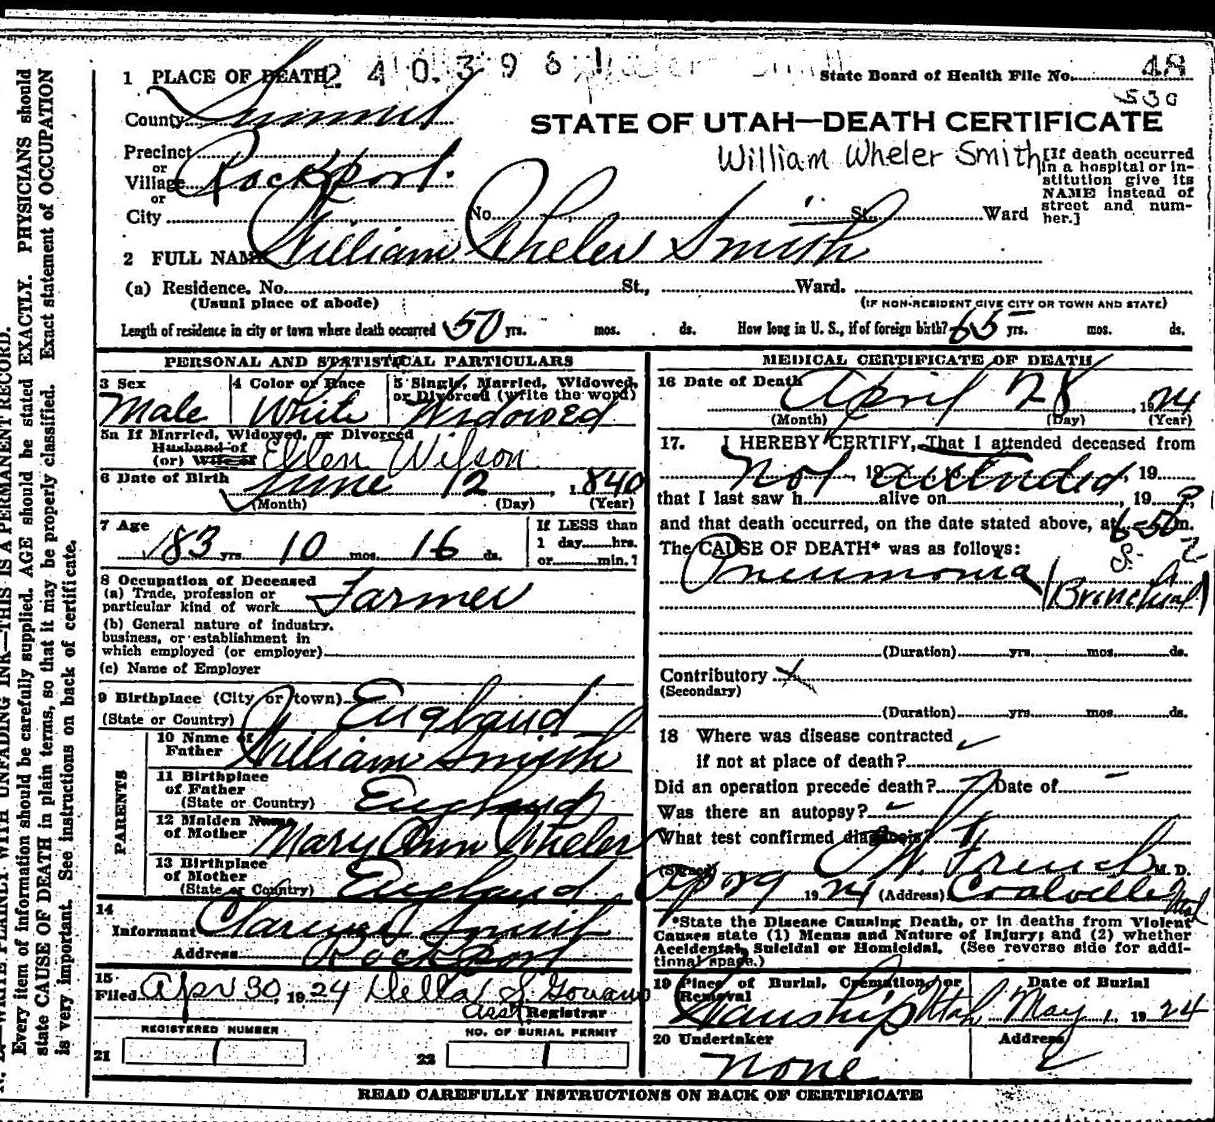 1 PLACE OF DEATH 2403961 State Board of Health File No. 48
County Summit 530
STATE OF UTAH—DEATH CERTIFICATE
Precinct
or
Village Rockport.
or
William Wheler Smith
[If death occurred in a hospital or in-
stitution give its
NAME instead of
street and num-
ber.]
City No. St. Ward
2 FULL NAME William Wheler Smith
(a) Residence. No. St., Ward.
(Usual place of abode) (IF NON-RESIDENT GIVE CITY OR TOWN AND STATE)
Length of residence in city or town where death occurred 50 yrs. mos. ds. How long in U. S., if of foreign birth? 65 yrs. mos. ds.
PERSONAL AND STATISTICAL PARTICULARS
3 Sex 4 Color or Race 5 Single, Married, Widowed,
or Divorced (write the word)
Male White Widowed
5a If Married, Widowed, or Divorced
Husband of
(or) Wife of Ellen Wilson
6 Date of Birth June 12, 1840
(Month) (Day) (Year)
7 Age If LESS than
83 yrs. 10 mos. 16 ds. 1 day......hrs.
or......min.?
8 Occupation of Deceased
(a) Trade, profession or
particular kind of work Farmer
(b) General nature of industry.
business, or establishment in
which employed (or employer)
(c) Name of Employer
9 Birthplace (City or town)
(State or Country) England
PARENTS
10 Name of
Father William Smith
11 Birthplace
of Father
(State or Country) England
12 Maiden Name
of Mother Mary Ann Wheler
13 Birthplace
of Mother
(State or Country) England
14
Informant Clarence Smith
Address Rockport
15
Filed Apr 30, 1924 Della S.
Asst Registrar
REGISTERED NUMBER NO. OF BURIAL PERMIT
21 22
MEDICAL CERTIFICATE OF DEATH
16 Date of Death April 28, 1924
(Month) (Day) (Year)
17. I HEREBY CERTIFY, That I attended deceased from
Not 19 attended, 19
that I last saw h alive on, 19
and that death occurred, on the date stated above, at 6-50 m.
The CAUSE OF DEATH* was as follows:
Pneumonia
(Bronchial)
(Duration) yrs. mos. ds.
Contributory
(Secondary)
(Duration) yrs. mos. ds.
18 Where was disease contracted
if not at place of death?
Did an operation precede death? Date of
Was there an autopsy?
What test confirmed diagnosis?
(Signed) French M. D.
Apr 29 1924 (Address) Coalville Utah
*State the Disease Causing Death, or in deaths from Violent
Causes state (1) Means and Nature of Injury; and (2) whether
Accidental, Suicidal or Homicidal. (See reverse side for addi-
tional space.)
19 Place of Burial, Cremation, or
Removal Date of Burial
Wanship Utah May 1, 1924
20 Undertaker Address
None
READ CAREFULLY INSTRUCTIONS ON BACK OF CERTIFICATE
WRITE PLAINLY WITH UNFADING INK—THIS IS A PERMANENT RECORD.
Every item of information should be carefully supplied. AGE should be stated EXACTLY. PHYSICIANS should
state CAUSE OF DEATH in plain terms, so that it may be properly classified. Exact statement of OCCUPATION
is very important. See instructions on back of certificate.